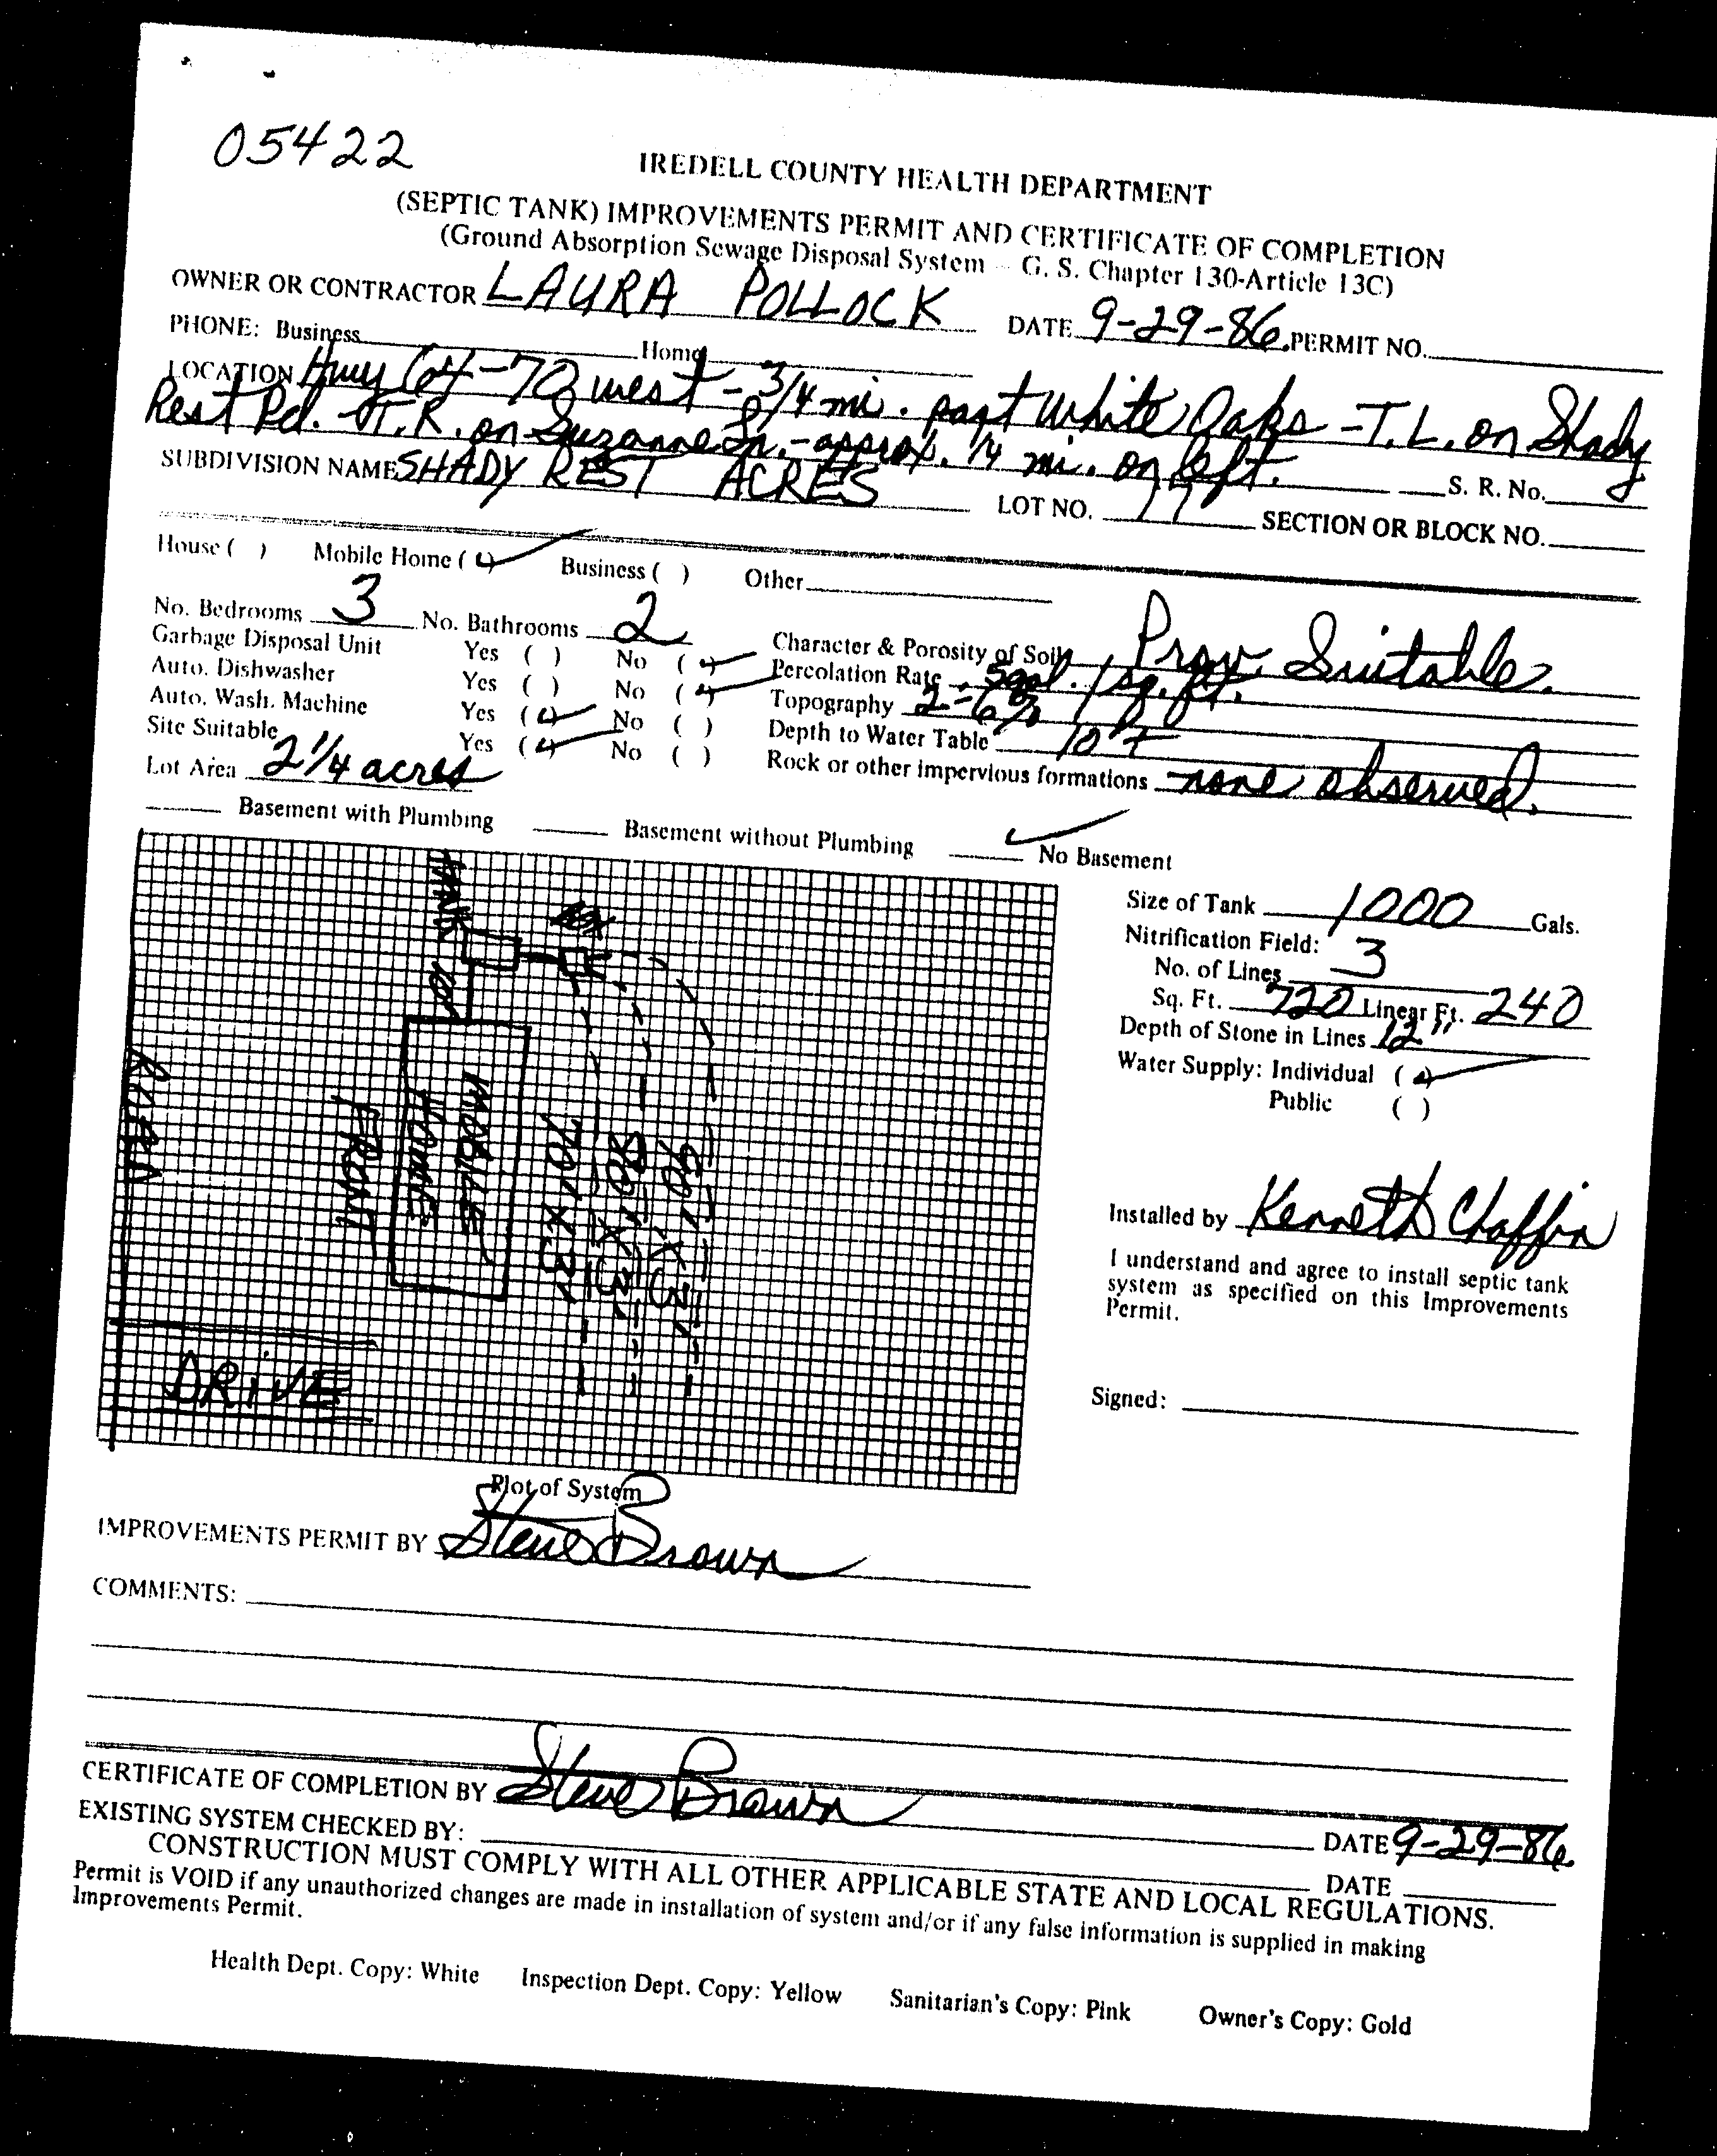 05422
IREDELL COUNTY HEALTH DEPARTMENT
(SEPTIC TANK) IMPROVEMENTS PERMIT AND CERTIFICATE OF COMPLETION
(Ground Absorption Sewage Disposal System - G. S. Chapter 130-Article 13C)
OWNER OR CONTRACTOR LAURA POLLOCK DATE 9-29-86 PERMIT NO.
PHONE: Business Home
LOCATION Hwy 64-70 west - 3/4 mi. past White Oaks - T.L. on Shady
Rest Rd. - T.R. on Suzanne Ln. - approx. 1/4 mi. on left. S. R. No.
SUBDIVISION NAME SHADY REST ACRES LOT NO. SECTION OR BLOCK NO.
House ( ) Mobile Home (✓) Business ( ) Other
No. Bedrooms 3 No. Bathrooms 2 Character & Porosity of Soil Prov. Suitable.
Garbage Disposal Unit Yes ( ) No (✓) Percolation Rate .5gal. / sq. ft.
Auto. Dishwasher Yes ( ) No (✓) Topography 2-6%
Auto. Wash. Machine Yes (✓) No ( ) Depth to Water Table 10'+
Site Suitable Yes (✓) No ( ) Rock or other impervious formations none observed.
Lot Area 2 1/4 acres
Basement with Plumbing Basement without Plumbing ✓ No Basement
TANK
BOX
10'
MOBILE
HOME
FRONT
ROAD
DRIVE
70' X 3'
80' X 3'
90' X 3'
Plot of System
Size of Tank 1000 Gals.
Nitrification Field:
No. of Lines 3
Sq. Ft. 720 Linear Ft. 240
Depth of Stone in Lines 12"
Water Supply: Individual (✓)
Public ( )
Installed by Kenneth Chaffin
I understand and agree to install septic tank
system as specified on this Improvements
Permit.
Signed:
IMPROVEMENTS PERMIT BY Steve Brown
COMMENTS:
CERTIFICATE OF COMPLETION BY Steve Brown DATE 9-29-86
EXISTING SYSTEM CHECKED BY: DATE
CONSTRUCTION MUST COMPLY WITH ALL OTHER APPLICABLE STATE AND LOCAL REGULATIONS.
Permit is VOID if any unauthorized changes are made in installation of system and/or if any false information is supplied in making
Improvements Permit.
Health Dept. Copy: White Inspection Dept. Copy: Yellow Sanitarian's Copy: Pink Owner's Copy: Gold